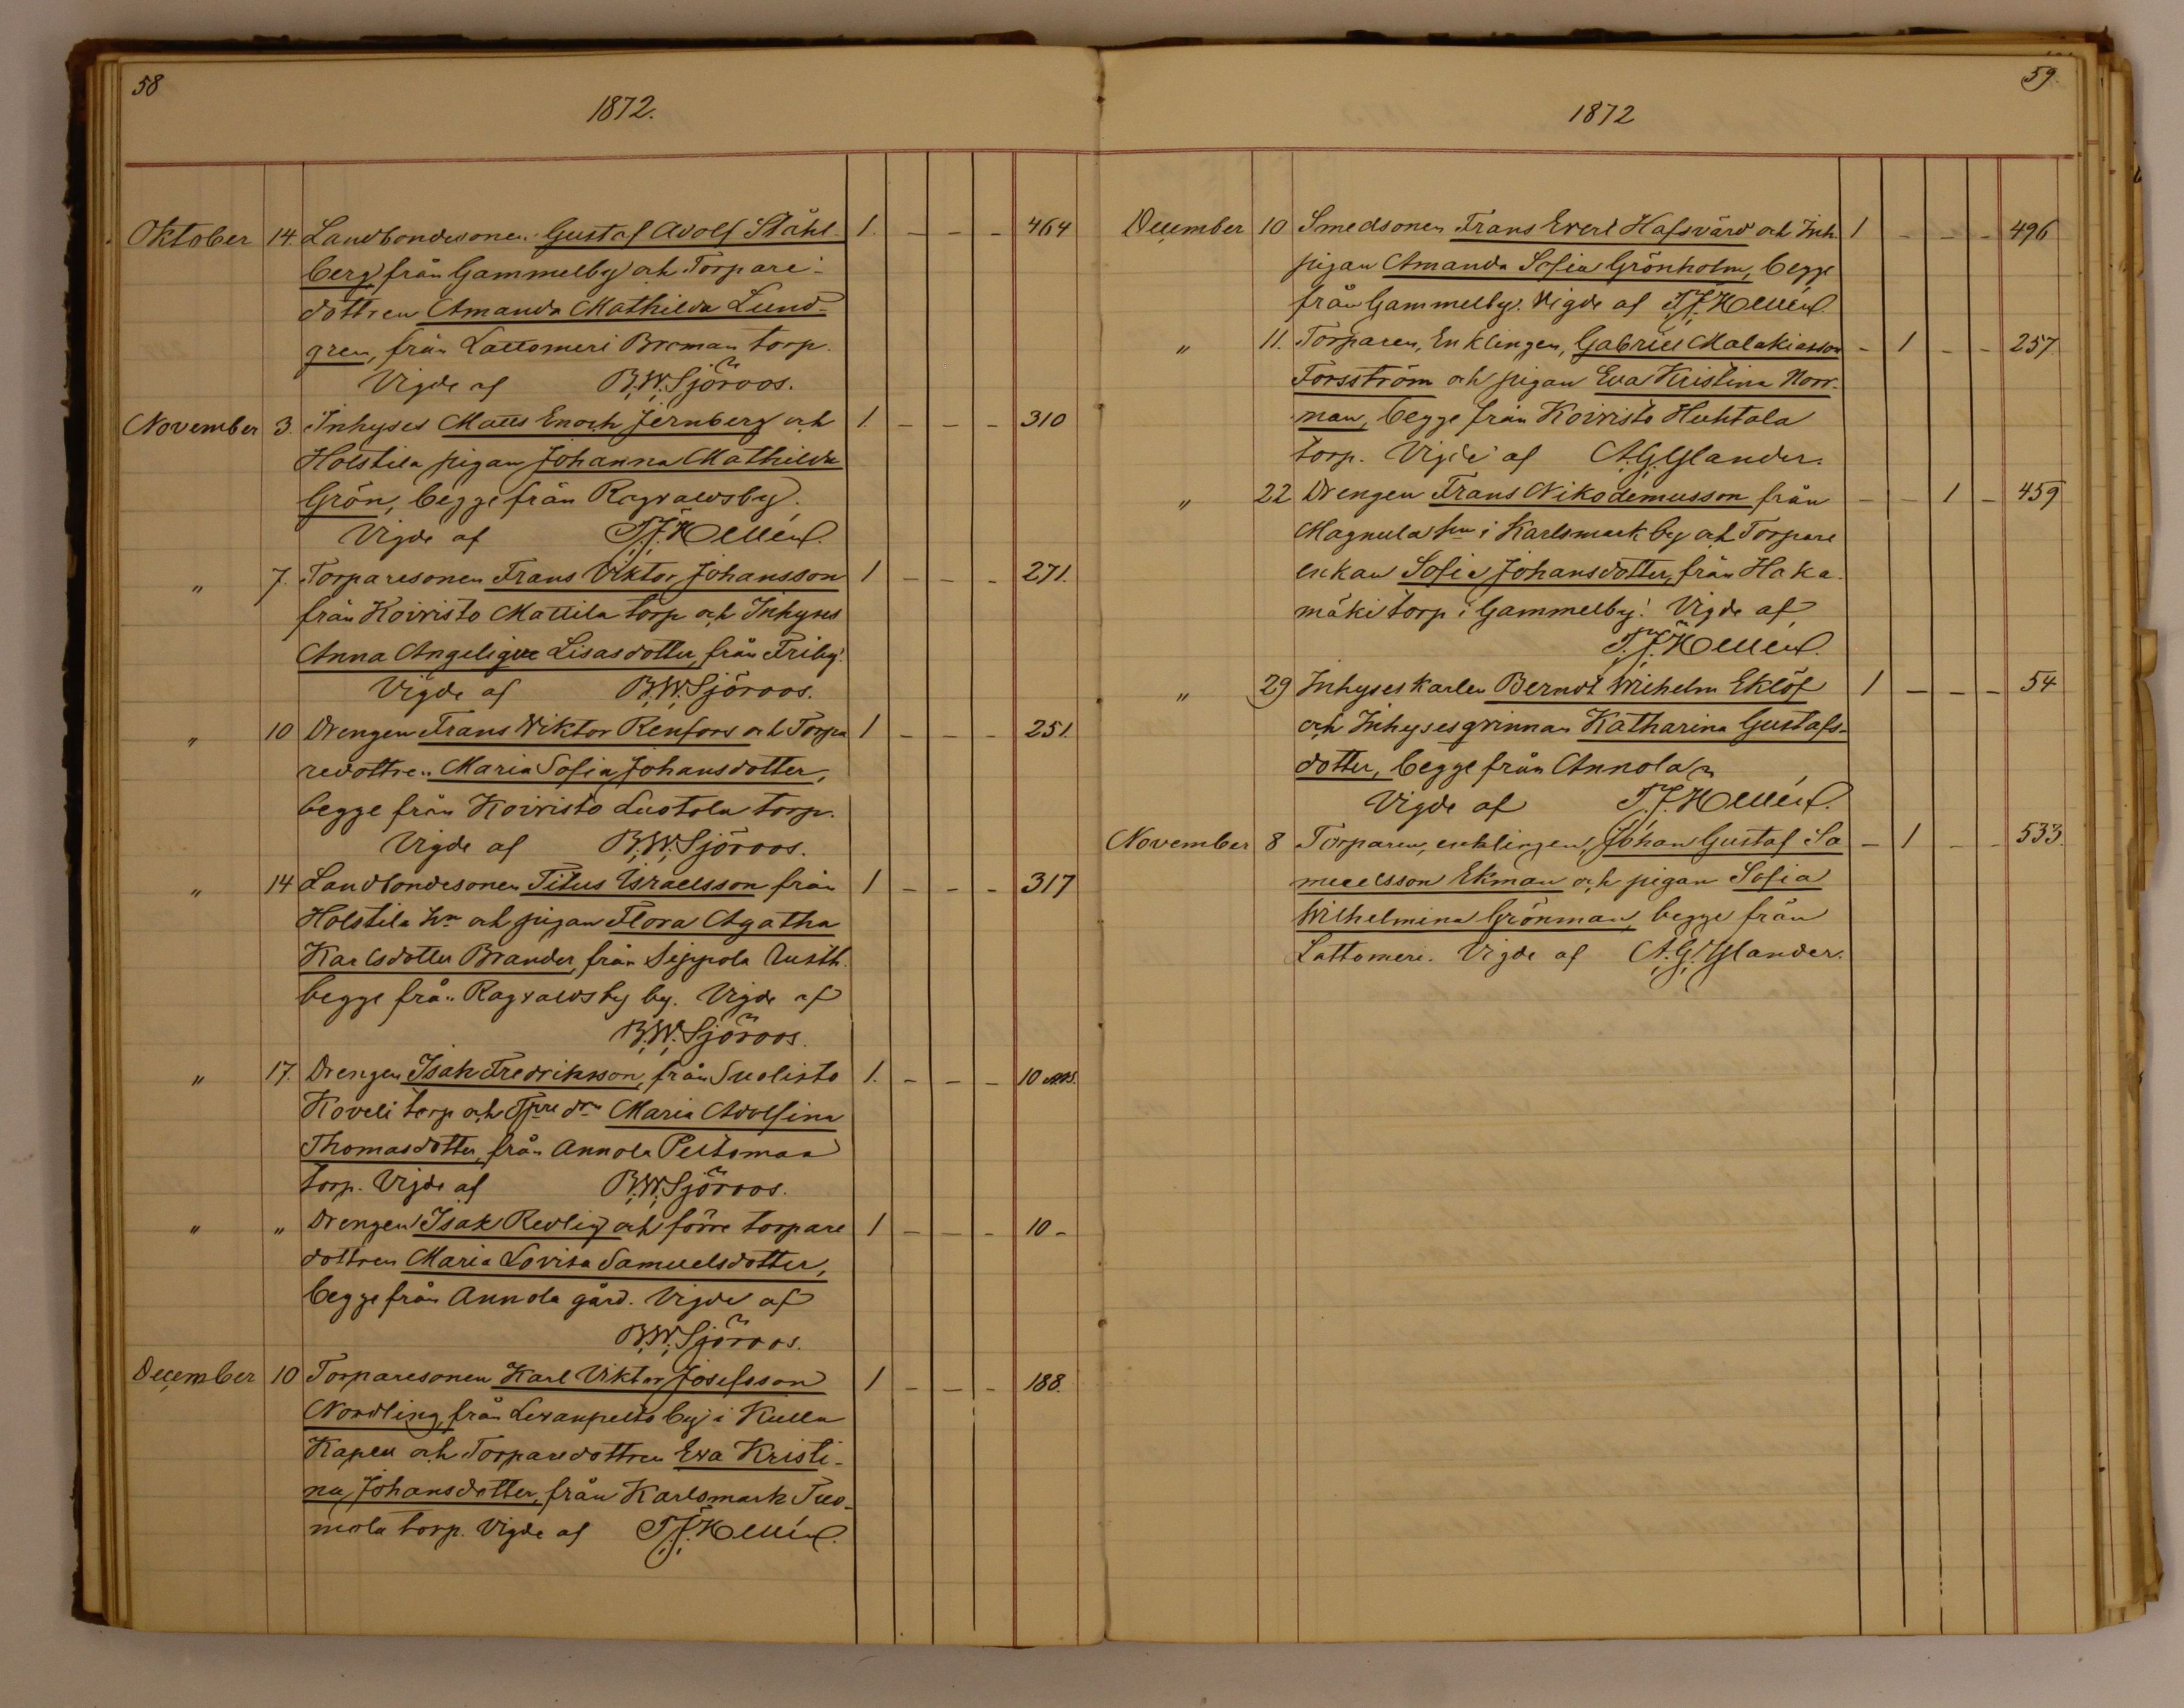 58
1872.
Oktober 14 Landbondesonen Gustaf Adolf Ståhl- 1. - - - 464
berg från Gammelby och Torpare-
dottren Amanda Mathilda Lund-
gren, från Lattomeri Broman torp.
Vigde af B.W.Sjöroos.
November 3. Inhyses Matts Enoch Jernberg och 1. - - - 310
Holstila pigan Johanna Mathilda
Grön, begge från Ragvaldsby.
Vigde af
" 7. Torparesonen Frans Viktor Johansson 1 - - - 271.
från Koivisto Mattila torp och Inhyses
Anna Angelique Lisasdotter, från Friby.
Vigde af B.W.Sjöroos.
" 10 Drengen Frans Viktor Renfors och Torpa 1 - - - 251.
redottren Maria Sofia Johansdotter,
begge från Koivisto Luotola torp.
Vigde af B.W.Sjöroos.
" 14 Landbondesonen Titus Israelsson från 1 - - - 317
Holstila hn och pigan Flora Agatha
Karlsdotter Brander, från Sippola Rusth.
begge från Ragvaldsby by. Vigde af
B.W.Sjöroos.
" 17. Drengen Isak Fredriksson, från Suolisto 1. - - - 10
Koveli torp och Tpre dr Maria Adolfina
Thomasdotter, från Annola Peltomaa
torp. Vigde af B.W.Sjöroos.
" " Drengen Isak Redlig och förre torpare 1 - - - 10 -
dottren Maria Lovisa Samuelsdotter,
begge från Annola gård. Vigde af
B.W.Sjöroos.
December 10 Torparesonen Karl Viktor Josefsson 1 - - - 188.
Nordling, från Levanpelto by i Kulla
Kapell och Torparedottren Eva Kristi-
na Johansdotter, från Karlsmark Tuo-
mola torp. Vigde af
59.
1872
December 10 Smedsonen Frans Everd Hafsvärd och Inh. 1 - - - 496
pigan Amanda Sofia Grönholm, begge
från Gammelby. Vigde af
" 11. Torparen, Enklingen, Gabriel Malakiasson - 1 - - 257
Forsström och pigan Eva Kristina Norr-
man, begge från Koivisto Huhtala
torp. Vigde af A.G.Ylander.
" 22 Drengen Frans Nikodemusson från - - 1 - 459
Magnula hn i Karlsmark by och Torpare
enkan Sofia Johansdotter, från Haka-
mäki torp i Gammelby. Vigde af
" 29 Inhyseskarlen Berndt Wilhelm Eklöf 1 - - - 54
och Inhysesqvinnan Katharina Gustafs-
dotter, begge från Annola
Vigde af
November 8 Torparen, enklingen, Johan Gustaf Sa - 1 - - 533.
muelsson Ekman och pigan Sofia
Wilhelmina Grönman, begge från
Lattomeri. Vigde af A.G.Ylander.